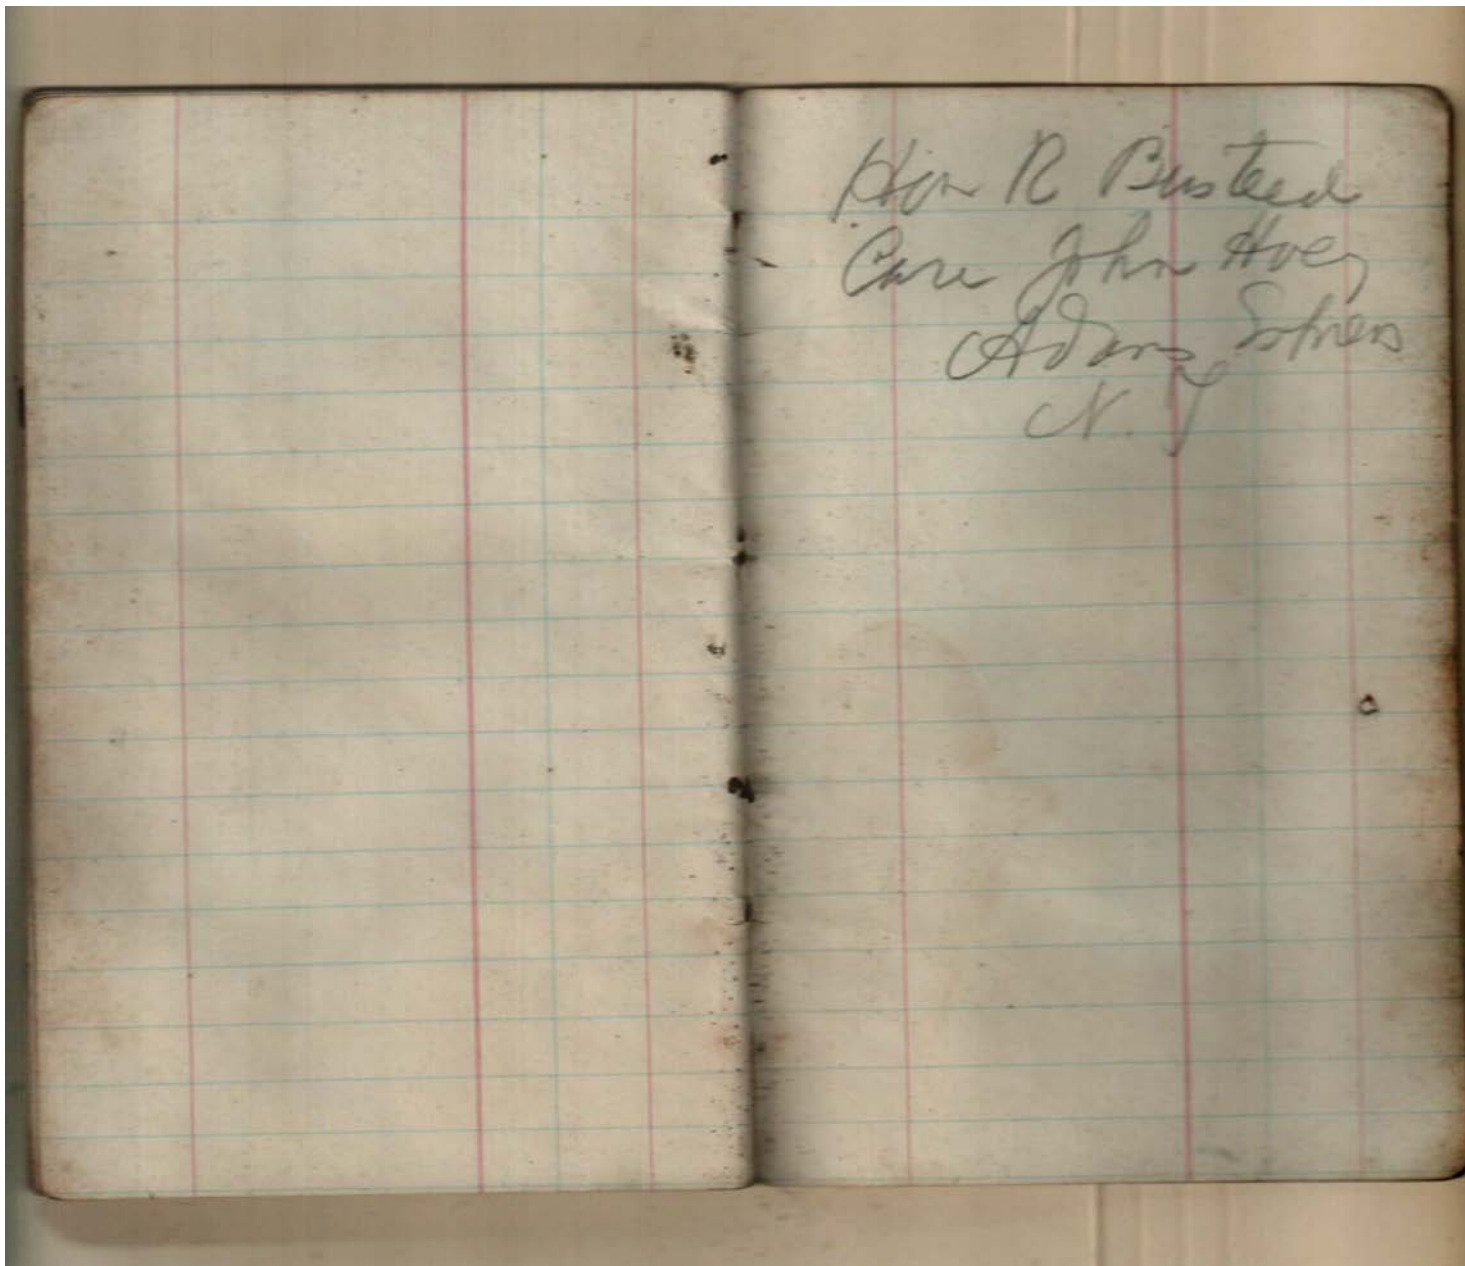 Hon R Busteed
Care John Hoey
Adams Express
N. Y